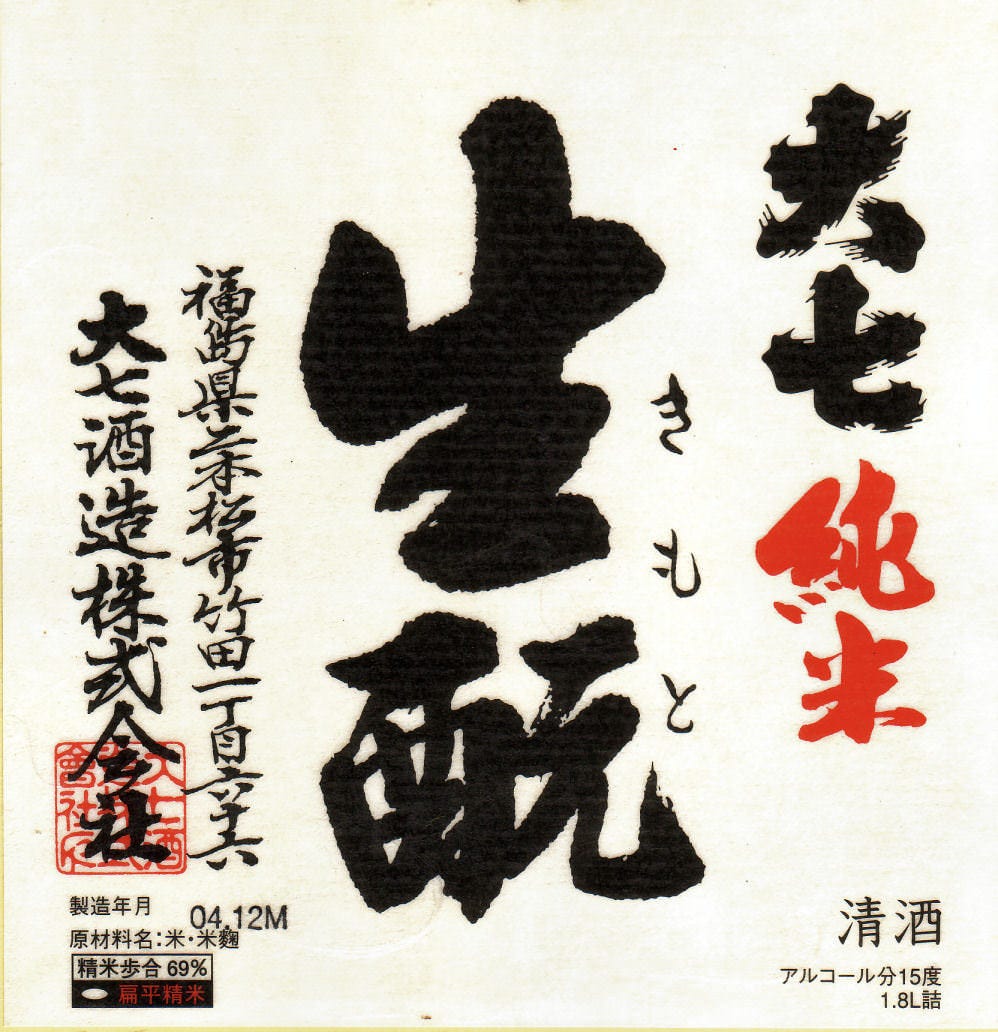 大七
純米
きもと
生酛
福島県二本松市竹田一丁目六十六
大七酒造株式会社
製造年月 04.12M
原材料名：米・米麹
精米歩合 69%
扁平精米
清酒
アルコール分15度
1.8L詰